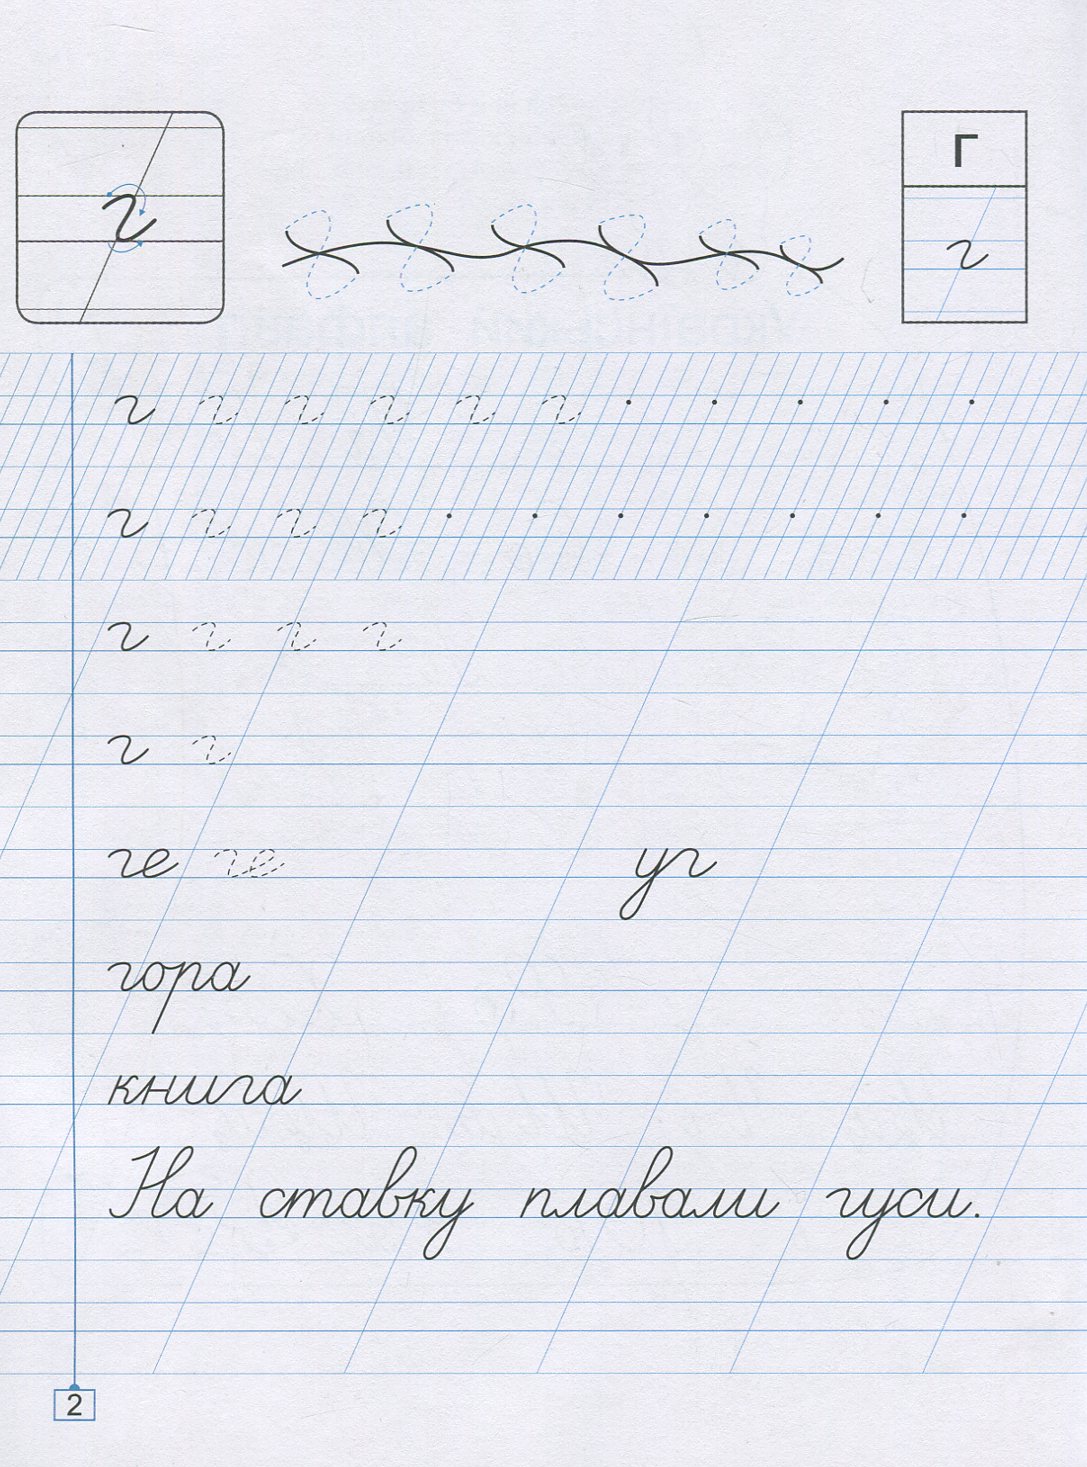 г Г
г
г г г г г г
г г г г
г г г г
г г
ге ге уг
гора
книга
На ставку плавали гуси.
2